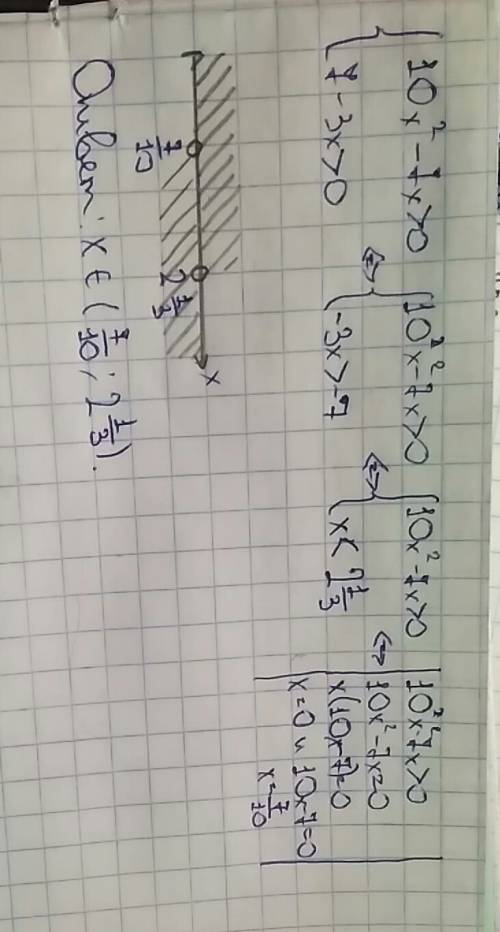 {10x² - 7x > 0 ⇔ {10x² - 7x > 0 ⇔ {10x² - 7x > 0 ⇔
{7 - 3x > 0 {-3x > -7 {x < 2 1/3
10x² - 7x > 0
10x² - 7x = 0
x(10x - 7) = 0
x = 0 и 10x - 7 = 0
x = 7/10
7/10 2 1/3 x
Ответ: x ∈ (7/10; 2 1/3).